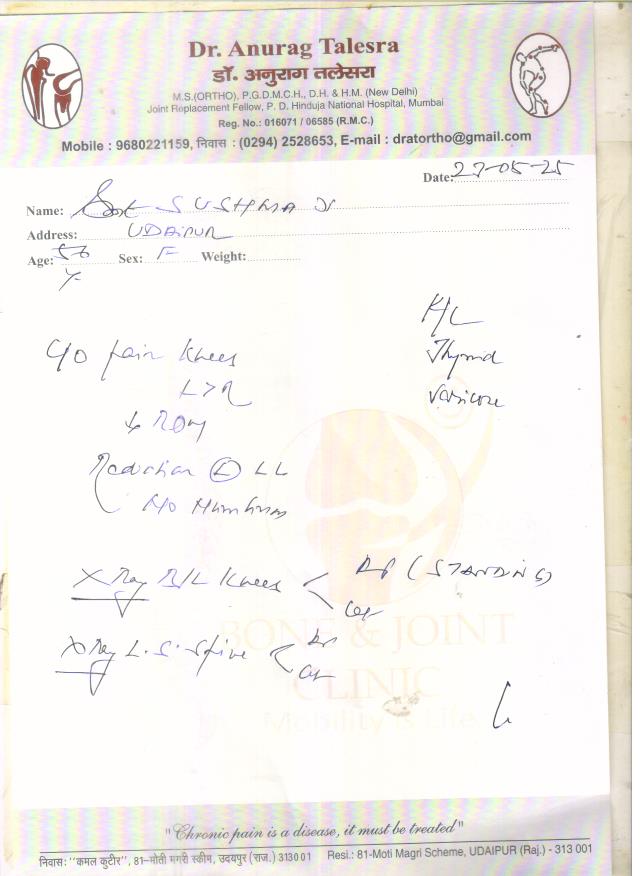 Dr. Anurag Talesra
डॉ. अनुराग तलेसरा
M.S.(ORTHO), P.G.D.M.C.H., D.H. & H.M. (New Delhi)
Joint Replacement Fellow, P. D. Hinduja National Hospital, Mumbai
Reg. No.: 016071 / 06585 (R.M.C.)
Mobile : 9680221159, निवास : (0294) 2528653, E-mail : dratortho@gmail.com
Date: 27-05-25
Name: Smt SUSHMA Ji
Address: UDAIPUR
Age: 56 Sex: F Weight:
Y
K/C
Thyroid
Varicose
C/O pain Knees
L>R
↓ ROM
Radiation (L) LL
N/O Numbness
X Ray B/L Knees < AP (STANDING)
Lat
X Ray L.S. Spine < AP
Lat
BONE & JOINT
CLINIC
Mobility is Life
"Chronic pain is a disease, it must be treated"
निवास: "कमल कुटीर", 81-मोती मगरी स्कीम, उदयपुर (राज.) 313001 Resi.: 81-Moti Magri Scheme, UDAIPUR (Raj.) - 313 001